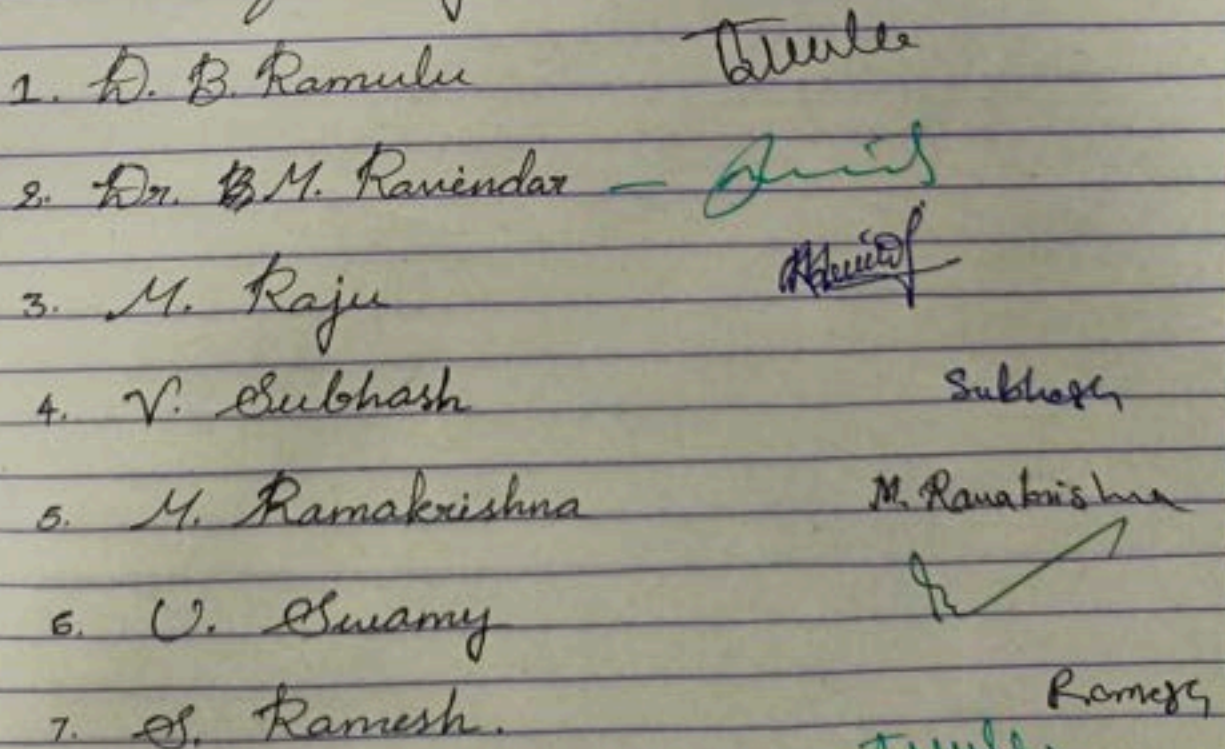 1. D. B. Ramulu
2. Dr. B M. Ravindar -
3. M. Raju
4. V. Subhash Subhash
5. M. Ramakrishna M. Ramakrishna
6. U. Swamy
7. S. Ramesh. Ramesh